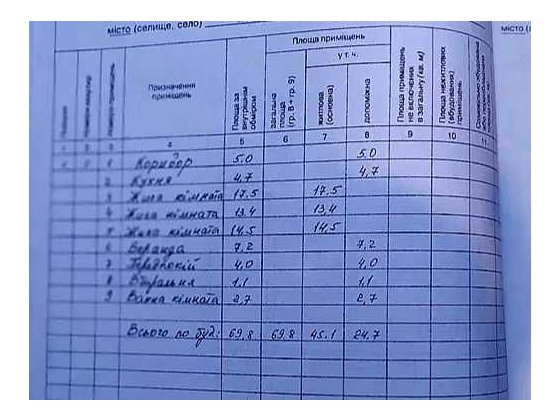 місто (селище, село)
місто (
Площа приміщень
у т. ч.
Призначення приміщень
Площа за внутрішнім обміром
загальна площа (гр. 8 + гр. 9)
житлова (основна)
допоміжна
Площа приміщень не включених в загальну (кв. м)
Площа нежитлових (вбудованих) приміщень
4 5 6 7 8 9 10 11
1 Коридор 5,0 5,0
2 Кухня 4,7 4,7
3 Жила кімната 17,5 17,5
4 Жила кімната 13,4 13,4
5 Жила кімната 14,5 14,5
6 Веранда 7,2 7,2
7 Передпокій 4,0 4,0
8 Вбиральня 1,1 1,1
9 Ванна кімната 2,7 2,7
Всього по буд: 69,8 69,8 45,1 24,7